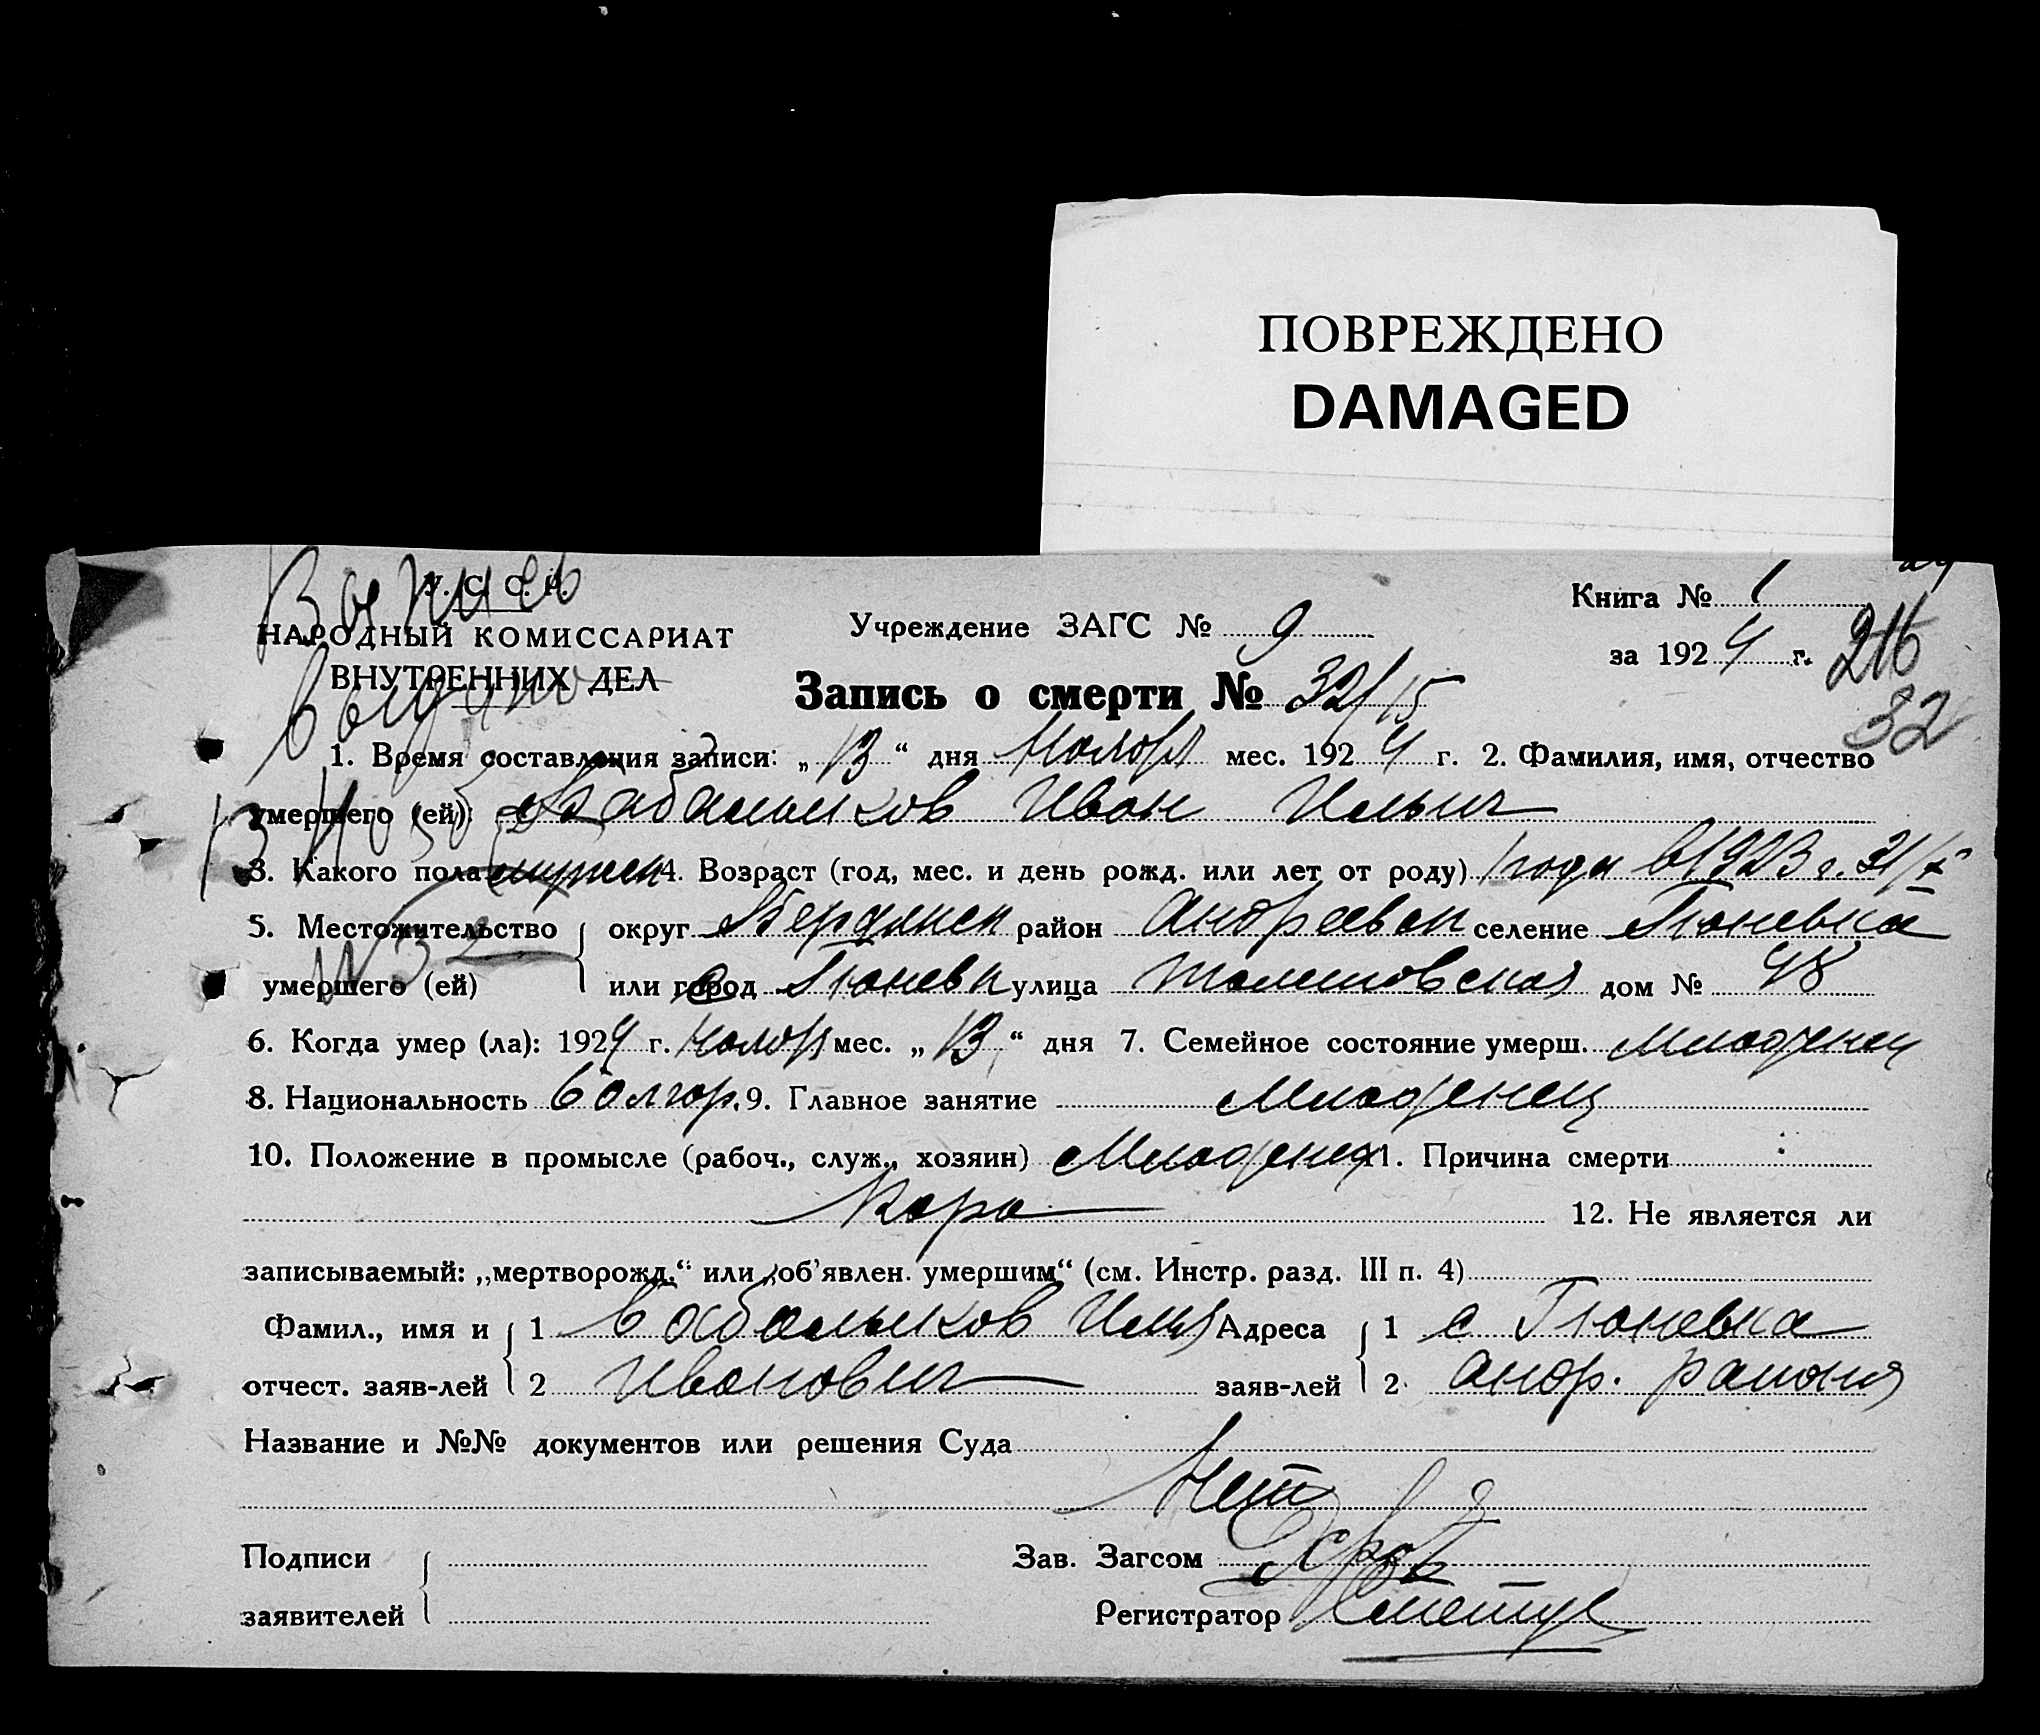 ПОВРЕЖДЕНО
DAMAGED
У. С. С. Р.
НАРОДНЫЙ КОМИССАРИАТ
ВНУТРЕННИХ ДЕЛ
Выпись
выдано
Учреждение ЗАГС № 9
Книга № 1
за 1924 г.
216
32
Запись о смерти № 32/15
1. Время составления записи: „13“ дня Ноября мес. 1924 г. 2. Фамилия, имя, отчество
умершего (ей): Бабальиков Иван Ильич
3. Какого пола мужск 4. Возраст (год, мес. и день рожд. или лет от роду) 1 года в 1923 г. 21/X
5. Местожительство умершего (ей) округ Бердянск район Андреевск селение Тюневка
№ 32
или город с Тюневк улица дом № 48
6. Когда умер (ла): 1924 г. Ноября мес. „13“ дня 7. Семейное состояние умерш. Младенец
8. Национальность болгар. 9. Главное занятие Младенец
10. Положение в промысле (рабоч., служ., хозяин) Младенец 11. Причина смерти
Кора 12. Не является ли
записываемый: „мертворожд.“ или „об’явлен. умершим“ (см. Инстр. разд. III п. 4)
Фамил., имя и отчест. заяв-лей 1 Бабальиков Илья Адреса заяв-лей 1 с Тюневка
2 Иванович 2 андр. района
Название и №№ документов или решения Суда
Нет
Подписи заявителей Зав. Загсом
Регистратор